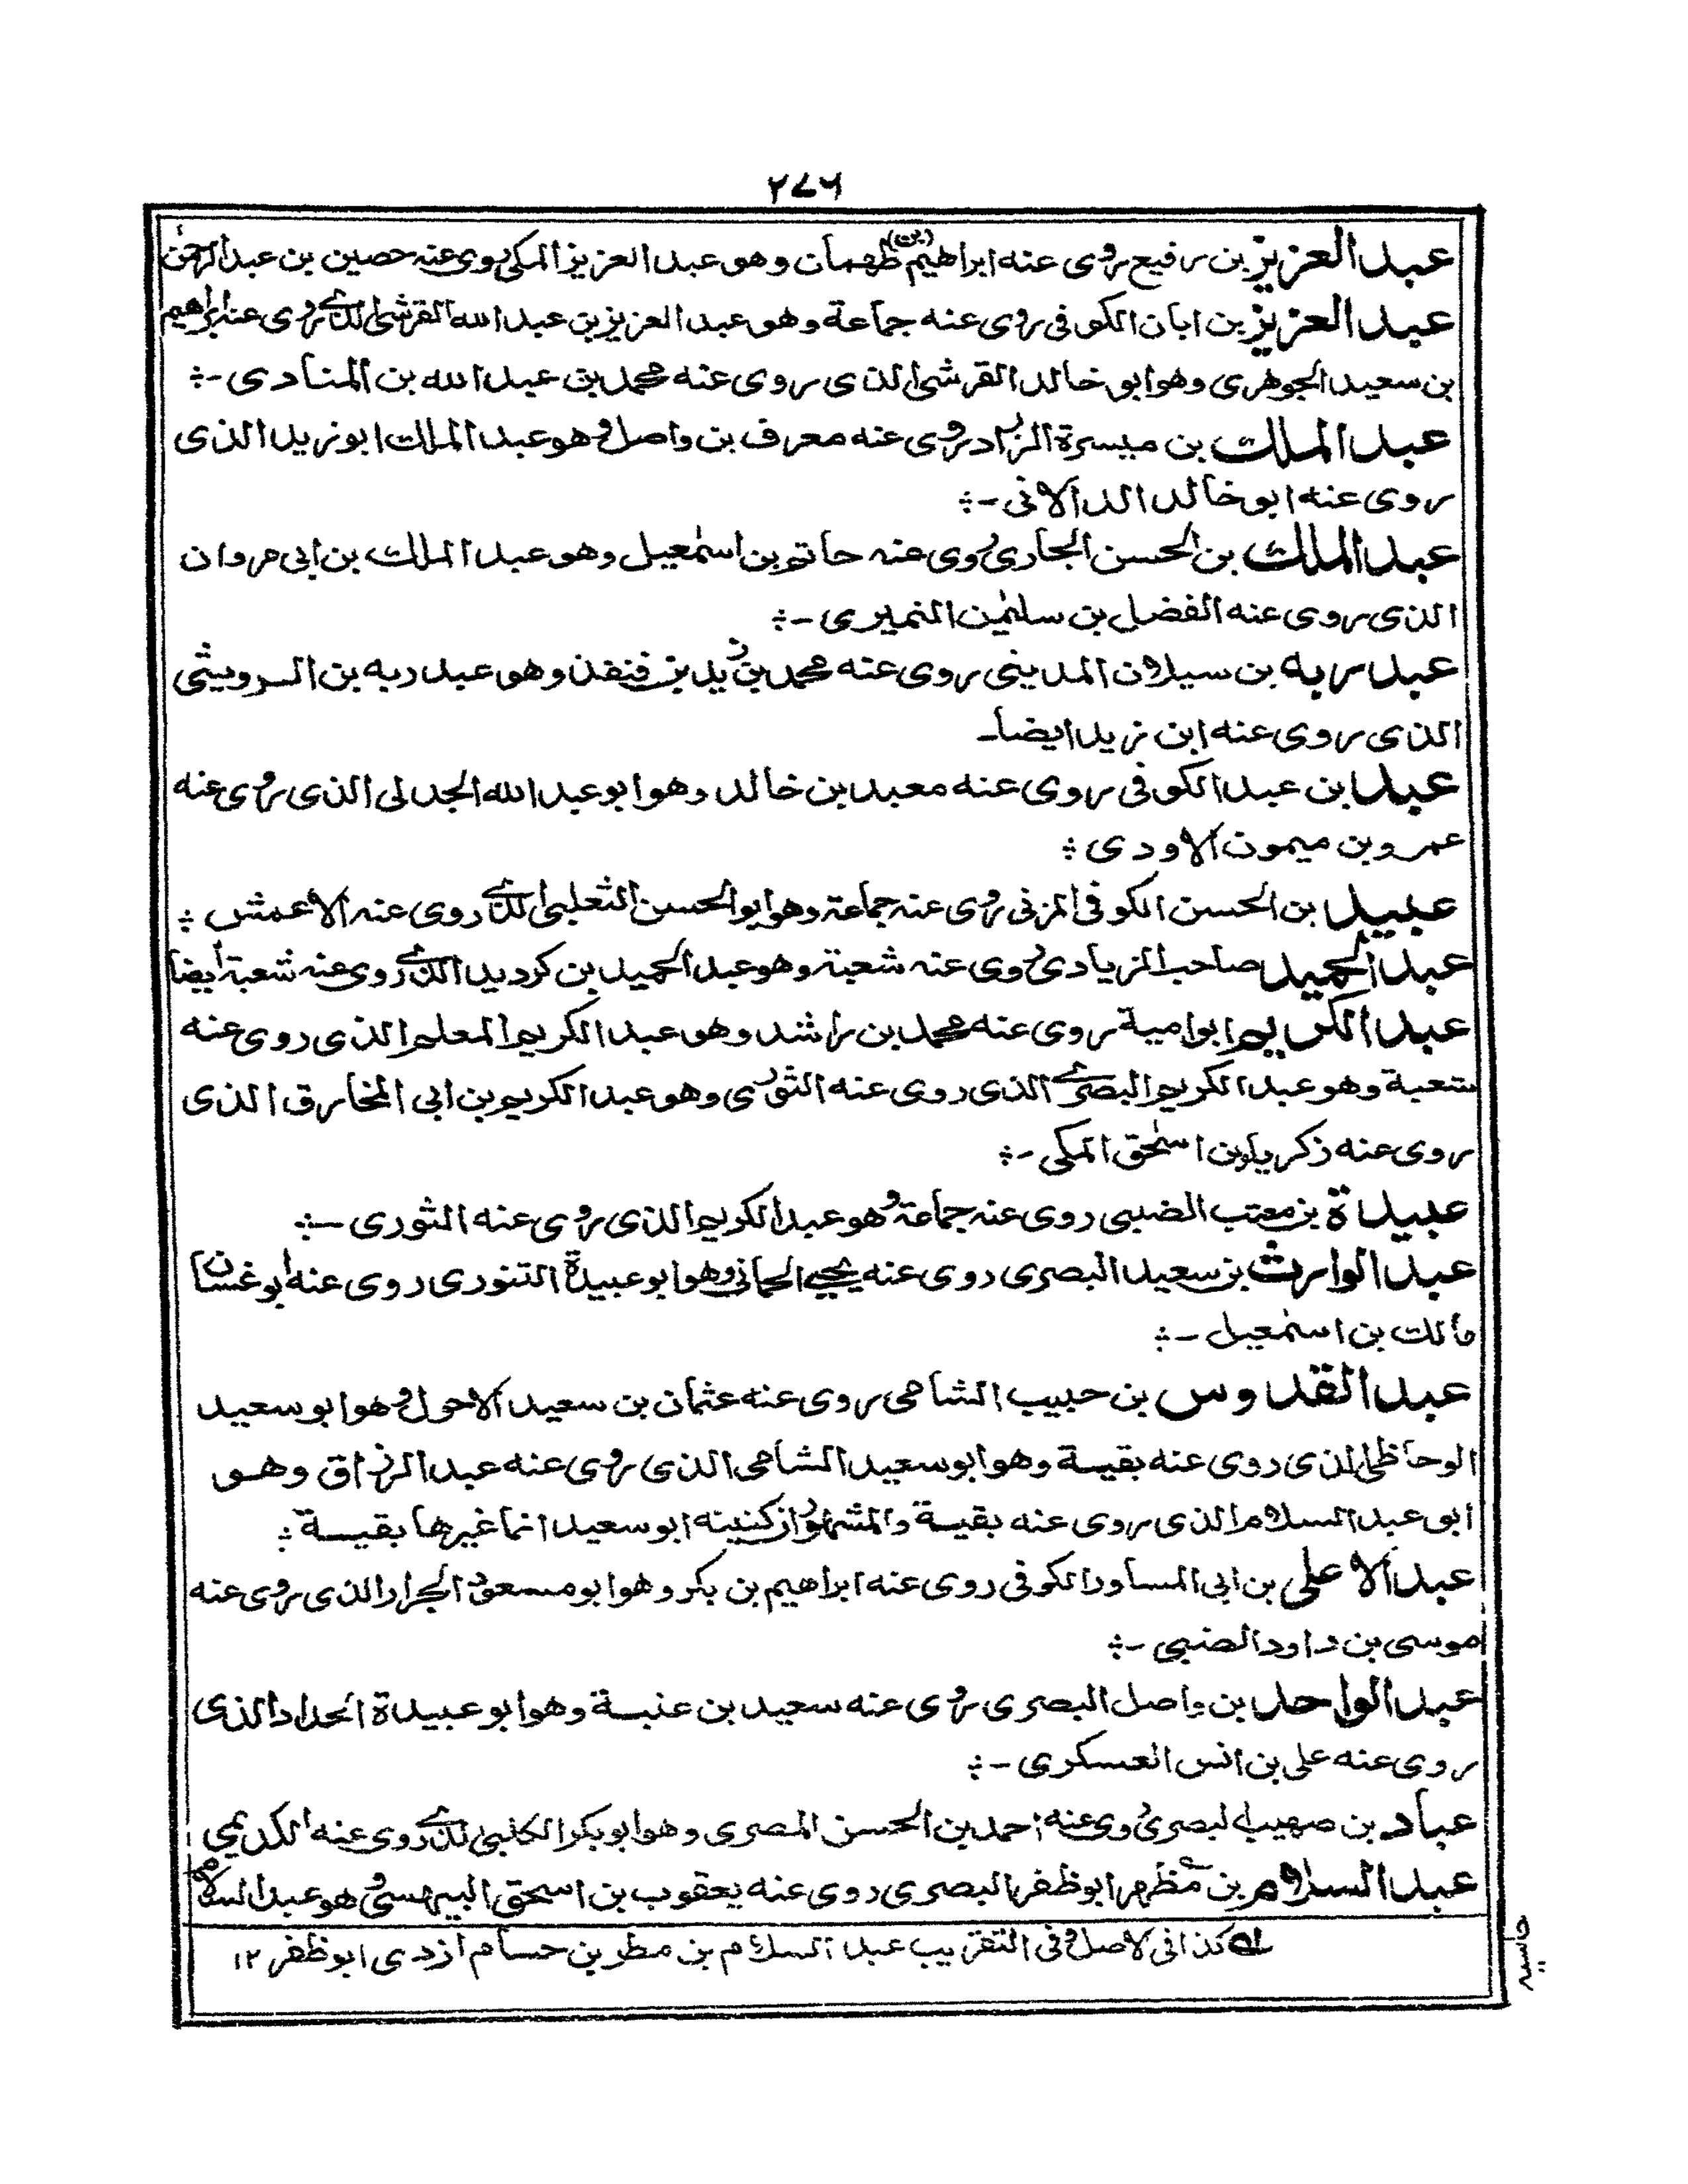 ٢٧٦
عبد العزيز بن رفيع روى عنه ابراهيم (بن) طهمان وهو عبد العزيز المكى روى عنه حصين بن عبد الرحمٰن
عبد العزيز بن ابان الكوفى روى عنه جماعة وهو عبد العزيز بن عبد الله القرشى الذے روى عنه ابراهيم
بن سعيد الجوهرى وهو ابو خالد القرشى الذى روى عنه محمد بن عبيد الله بن المنادى -:
عبد الملك بن ميسرة الزراد روى عنه معرف بن واصل وهو عبد الملك ابو زيد الذى
روى عنه ابو خالد الدالانى -:
عبد الملك بن الحسن الجارى روى عنه حاتم بن اسمٰعيل وهو عبد الملك بن ابى مروان
الذى روى عنه الفضل بن سليمٰن النميرى -:
عبد ربه بن سيلان المدينى روى عنه محمد بن زيد بن قنفذ وهو عبد ربه بن
الذى روى عنه ابن زيد ايضا-
عبد بن عبد الكوفى روى عنه معبد بن خالد وهو ابو عبد الله الجدلى الذى روى عنه
عمرو بن ميمون الاودى :
عبيد بن الحسن الكوفى المزنى روى عنه جماعة وهو ابو الحسن الثعلبى الذے روى عنه الاعمش :
عبد الحميد صاحب الزيادى روى عنه شعبة وهو عبد الحميد بن كرديد الذے روى عنه شعبة ايضا
عبد الكريم ابو امية روى عنه محمد بن راشد وهو عبد الكريم المعلم الذى روى عنه
شعبة وهو عبد الكريم البصرے الذى روى عنه الثورى وهو عبد الكريم بن ابى المخارق الذى
روى عنه زكريا بن اسحٰق المكى -:
عبيدة بن معتب الضبى روى عنه جماعة وهو عبد الكريم الذى روى عنه الثورى -:
عبد الوارث بن سعيد البصرى روى عنه يحيے الحمانى وهو ابو عبيدة التنورى روى عنه ابو غسان
مالك بن اسمٰعيل -:
عبد القدوس بن حبيب الشامى روى عنه عثمان بن سعيد الاحول وهو ابو سعيد
الوحاظى الذى روى عنه بقيسة وهو ابو سعيد الشامى الذى روى عنه عبد الرزاق وهو
ابو عبد السلام الذى روى عنه بقيسة والمشهور ان كنيته ابو سعيد انما غيرها بقيسة :
عبد الاعلى بن ابى المساور الكوفى روى عنه ابراهيم بن بكر وهو ابو مسعود الجرار الذى روى عنه
موسى بن داود الضبى -:
عبد الواحد بن واصل البصرى روى عنه سعيد بن عنبسة وهو ابو عبيدة الحداد الذى
روى عنه على بن انس العسكرى -:
عباد بن صهيب البصرى روى عنه احمد بن الحسن المصرى وهو ابو بكر الكلبى الذے روى عنه الكديمى
عبد السلام بن مظهر ابو ظفر البصرى روى عنه يعقوب بن اسحق البيهسى وهو عبد السلام
له كذا فى الاصل وفى التقريب عبد السلام بن مطر بن حسام ازدى ابو ظفر ١٢
حاشيه